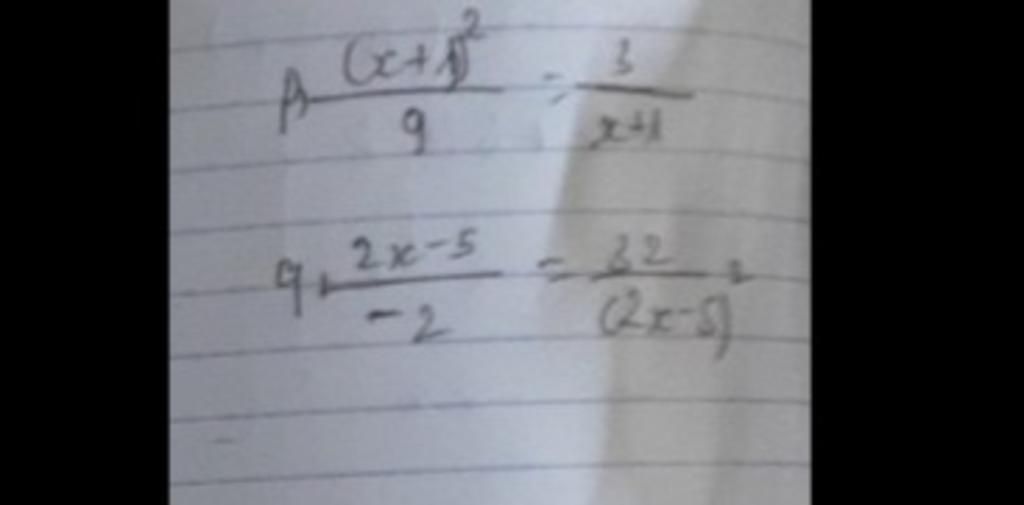 A (x+1)² / 9 = 3 / x+1
9. 2x-5 / -2 = 32 / (2x-5)²